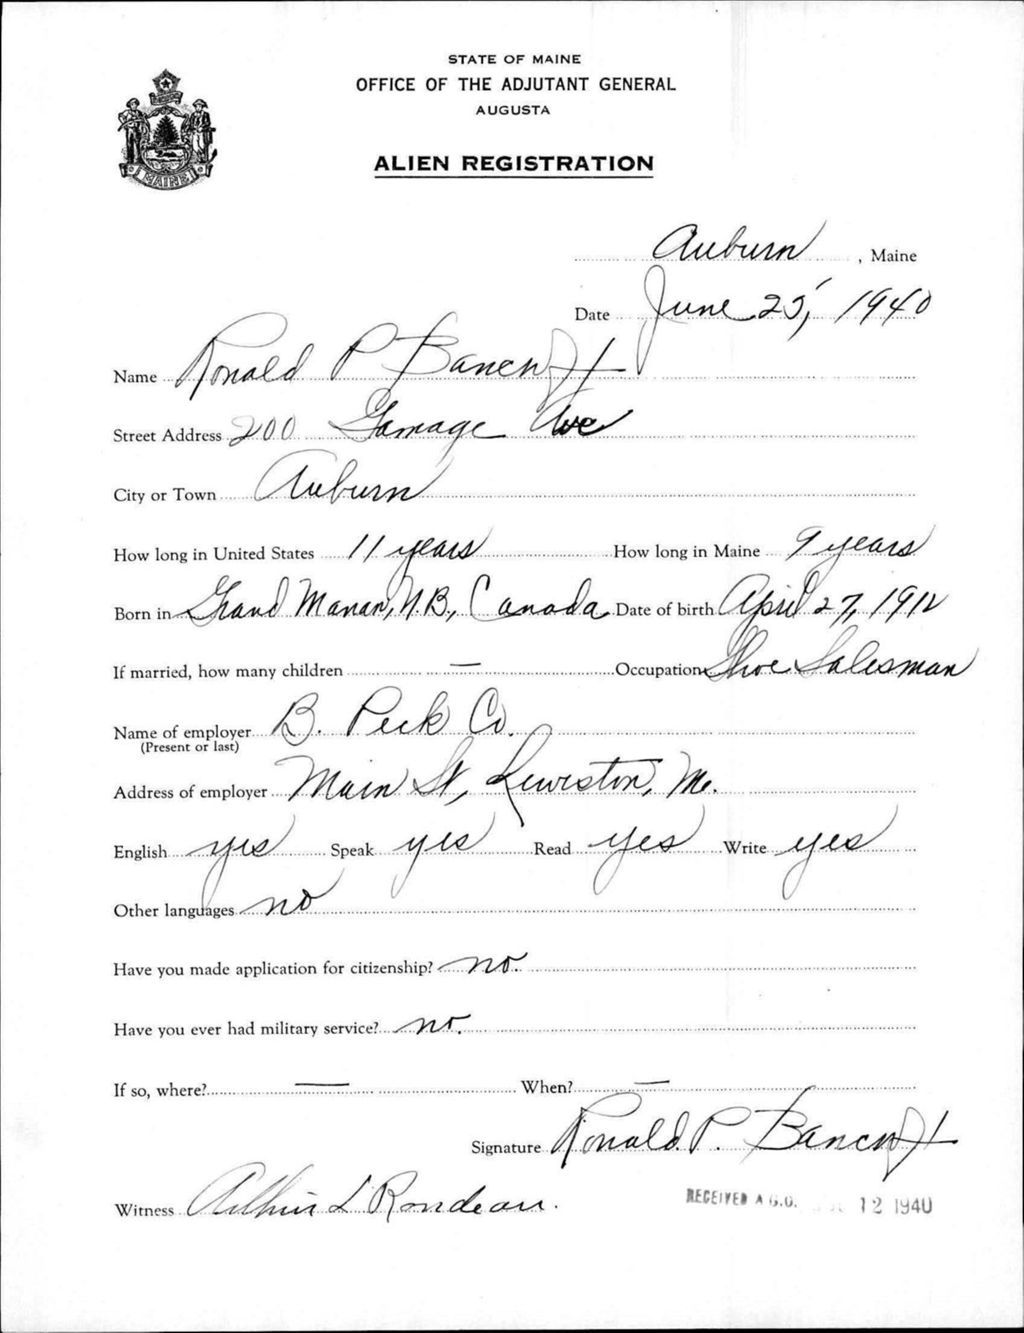 STATE OF MAINE
OFFICE OF THE ADJUTANT GENERAL
AUGUSTA
ALIEN REGISTRATION
MAINE
Auburn, Maine
Date June 25, 1940
Name Ronald P Bancroft
Street Address 200 Gamage Ave
City or Town Auburn
How long in United States 11 years How long in Maine 9 years
Born in Grand Manan, N.B., Canada Date of birth April 27, 1912
If married, how many children — Occupation Shoe Salesman
Name of employer B. Peck Co.
(Present or last)
Address of employer Main St, Lewiston, Me.
English yes Speak yes Read yes Write yes
Other languages no
Have you made application for citizenship? no.
Have you ever had military service? no.
If so, where? — When? —
Signature Ronald P. Bancroft
Witness Arthur L Rondeau.
RECEIVED A.G.O. 12 1940